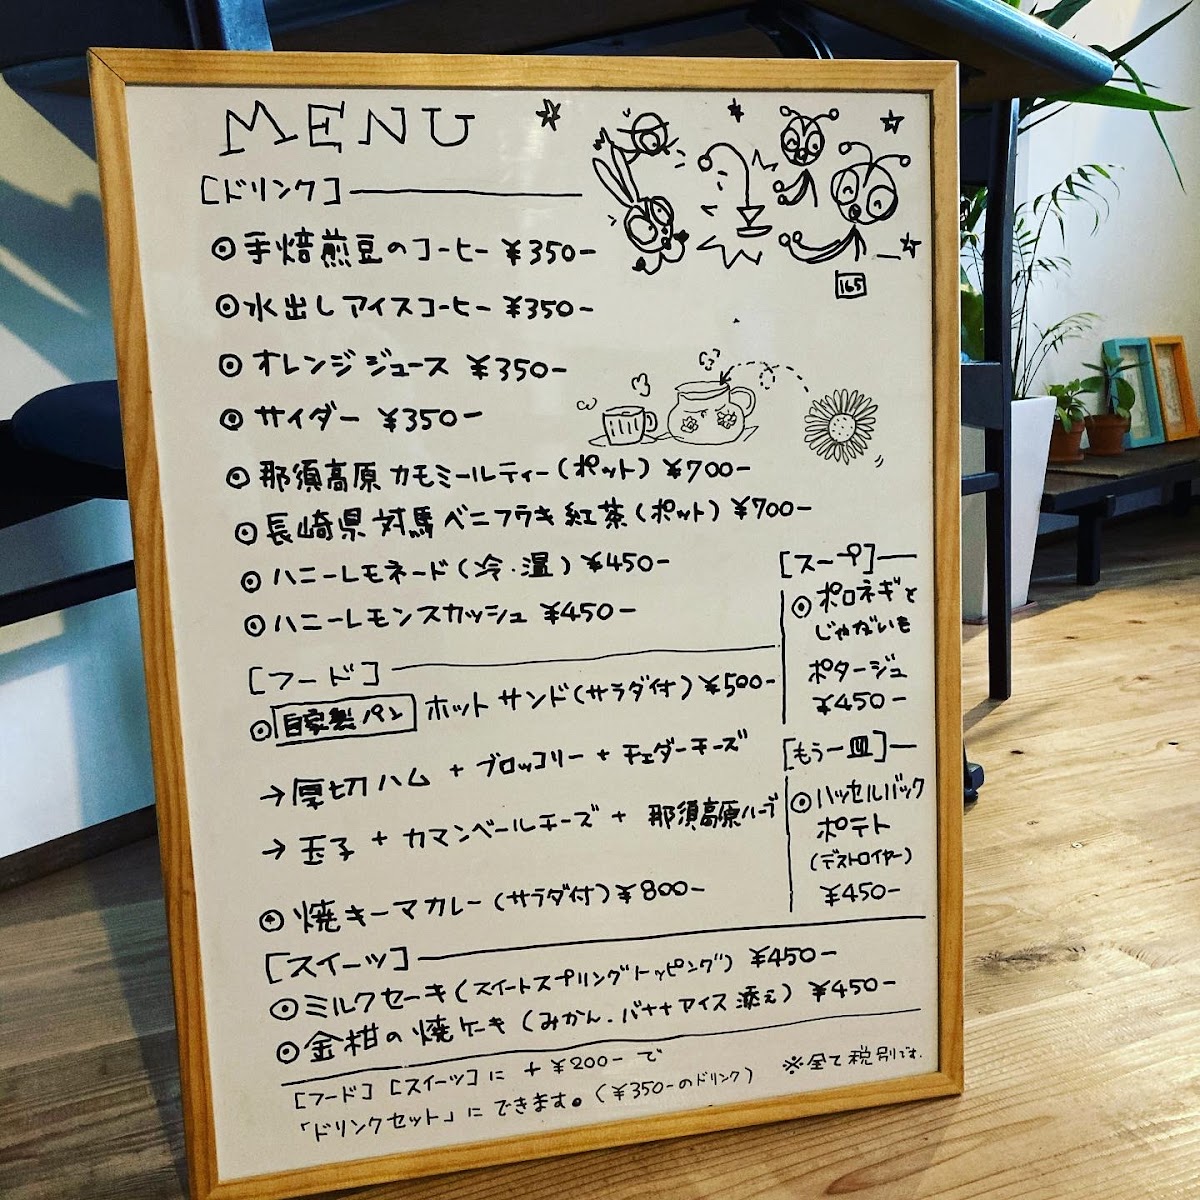 MENU
[ドリンク]
◎手焙煎豆のコーヒー ¥350-
◎水出しアイスコーヒー ¥350-
◎オレンジジュース ¥350-
◎サイダー ¥350-
◎那須高原カモミールティー(ポット) ¥700-
◎長崎県対馬ベニフウキ紅茶(ポット) ¥700-
◎ハニーレモネード(冷・温) ¥450-
◎ハニーレモンスカッシュ ¥450-
[フード]
◎自家製パン ホットサンド(サラダ付) ¥500-
→厚切ハム + ブロッコリー + チェダーチーズ
→玉子 + カマンベールチーズ + 那須高原ハーブ
◎焼キーマカレー(サラダ付) ¥800-
[スープ]
◎ポロネギと
じゃがいも
ポタージュ
¥450-
[もう一皿]
◎ハッセルバック
ポテト
(デストロイヤー)
¥450-
[スイーツ]
◎ミルクセーキ(スイートスプリングトッピング) ¥450-
◎金柑の焼ケーキ(みかん・バナナアイス添え) ¥450-
[フード][スイーツ]に+¥200-で
「ドリンクセット」にできます。(¥350-のドリンク)
※全て税別です.
165